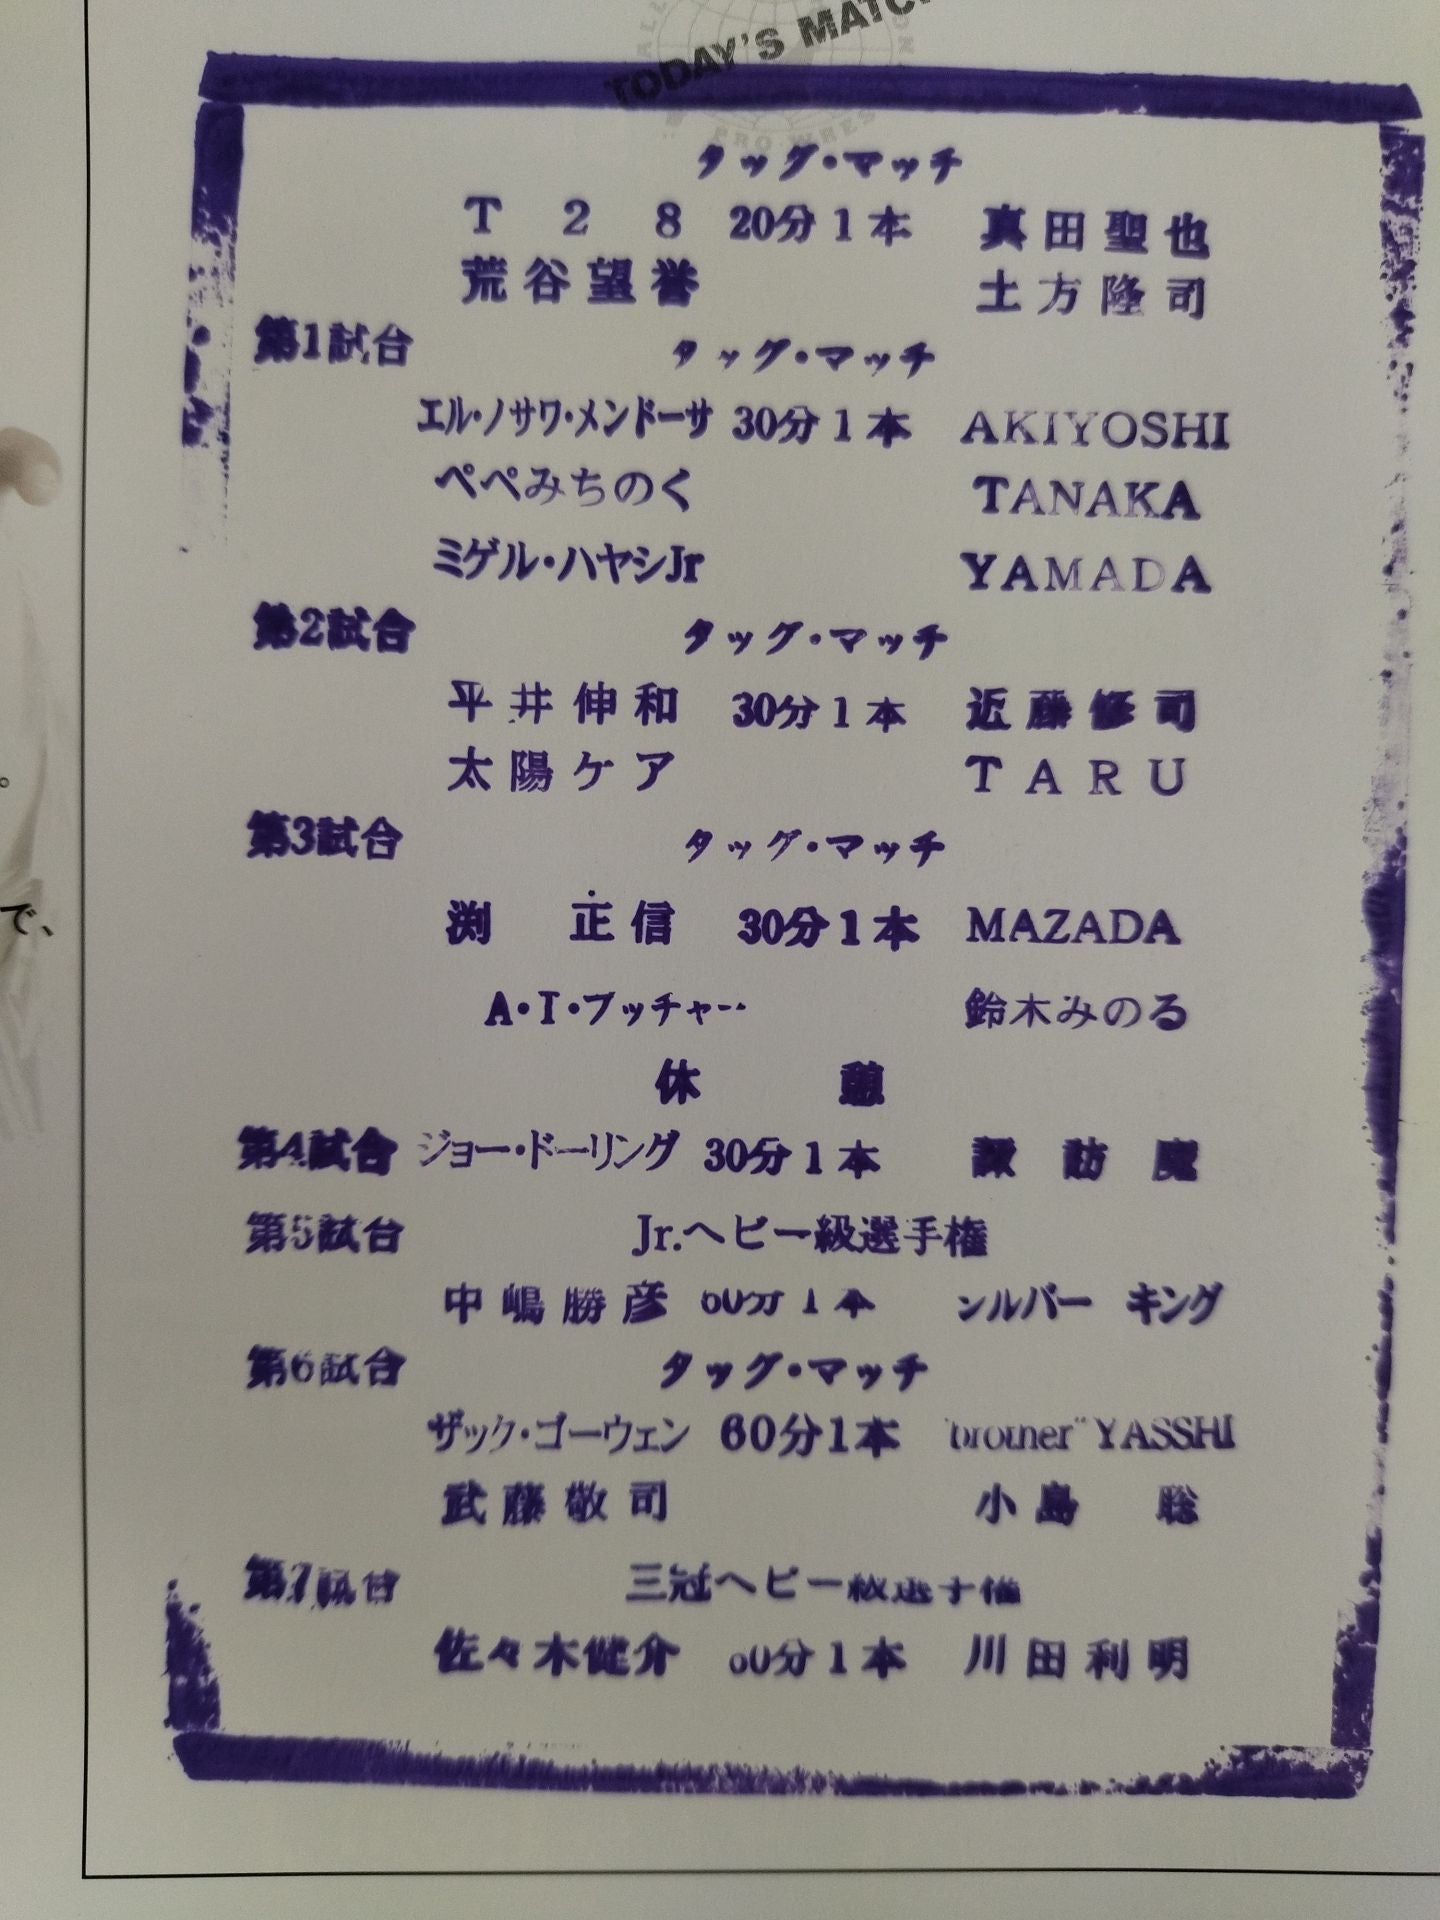 TODAY'S MATC
タッグ・マッチ
T28 20分1本 真田聖也
荒谷望誉 土方隆司
第1試合 タッグ・マッチ
エル・ノサワ・メンドーサ 30分1本 AKIYOSHI
ペペみちのく TANAKA
ミゲル・ハヤシJr YAMADA
第2試合 タッグ・マッチ
平井伸和 30分1本 近藤修司
太陽ケア TARU
第3試合 タッグ・マッチ
渕 正信 30分1本 MAZADA
A・T・ブッチャー 鈴木みのる
休憩
第4試合 ジョー・ドーリング 30分1本 諏訪魔
第5試合 Jr.ヘビー級選手権
中嶋勝彦 60分1本 シルバー キング
第6試合 タッグ・マッチ
ザック・ゴーウェン 60分1本 "brother"YASSHI
武藤敬司 小島 聡
第7試合 三冠ヘビー級選手権
佐々木健介 60分1本 川田利明
。
で、